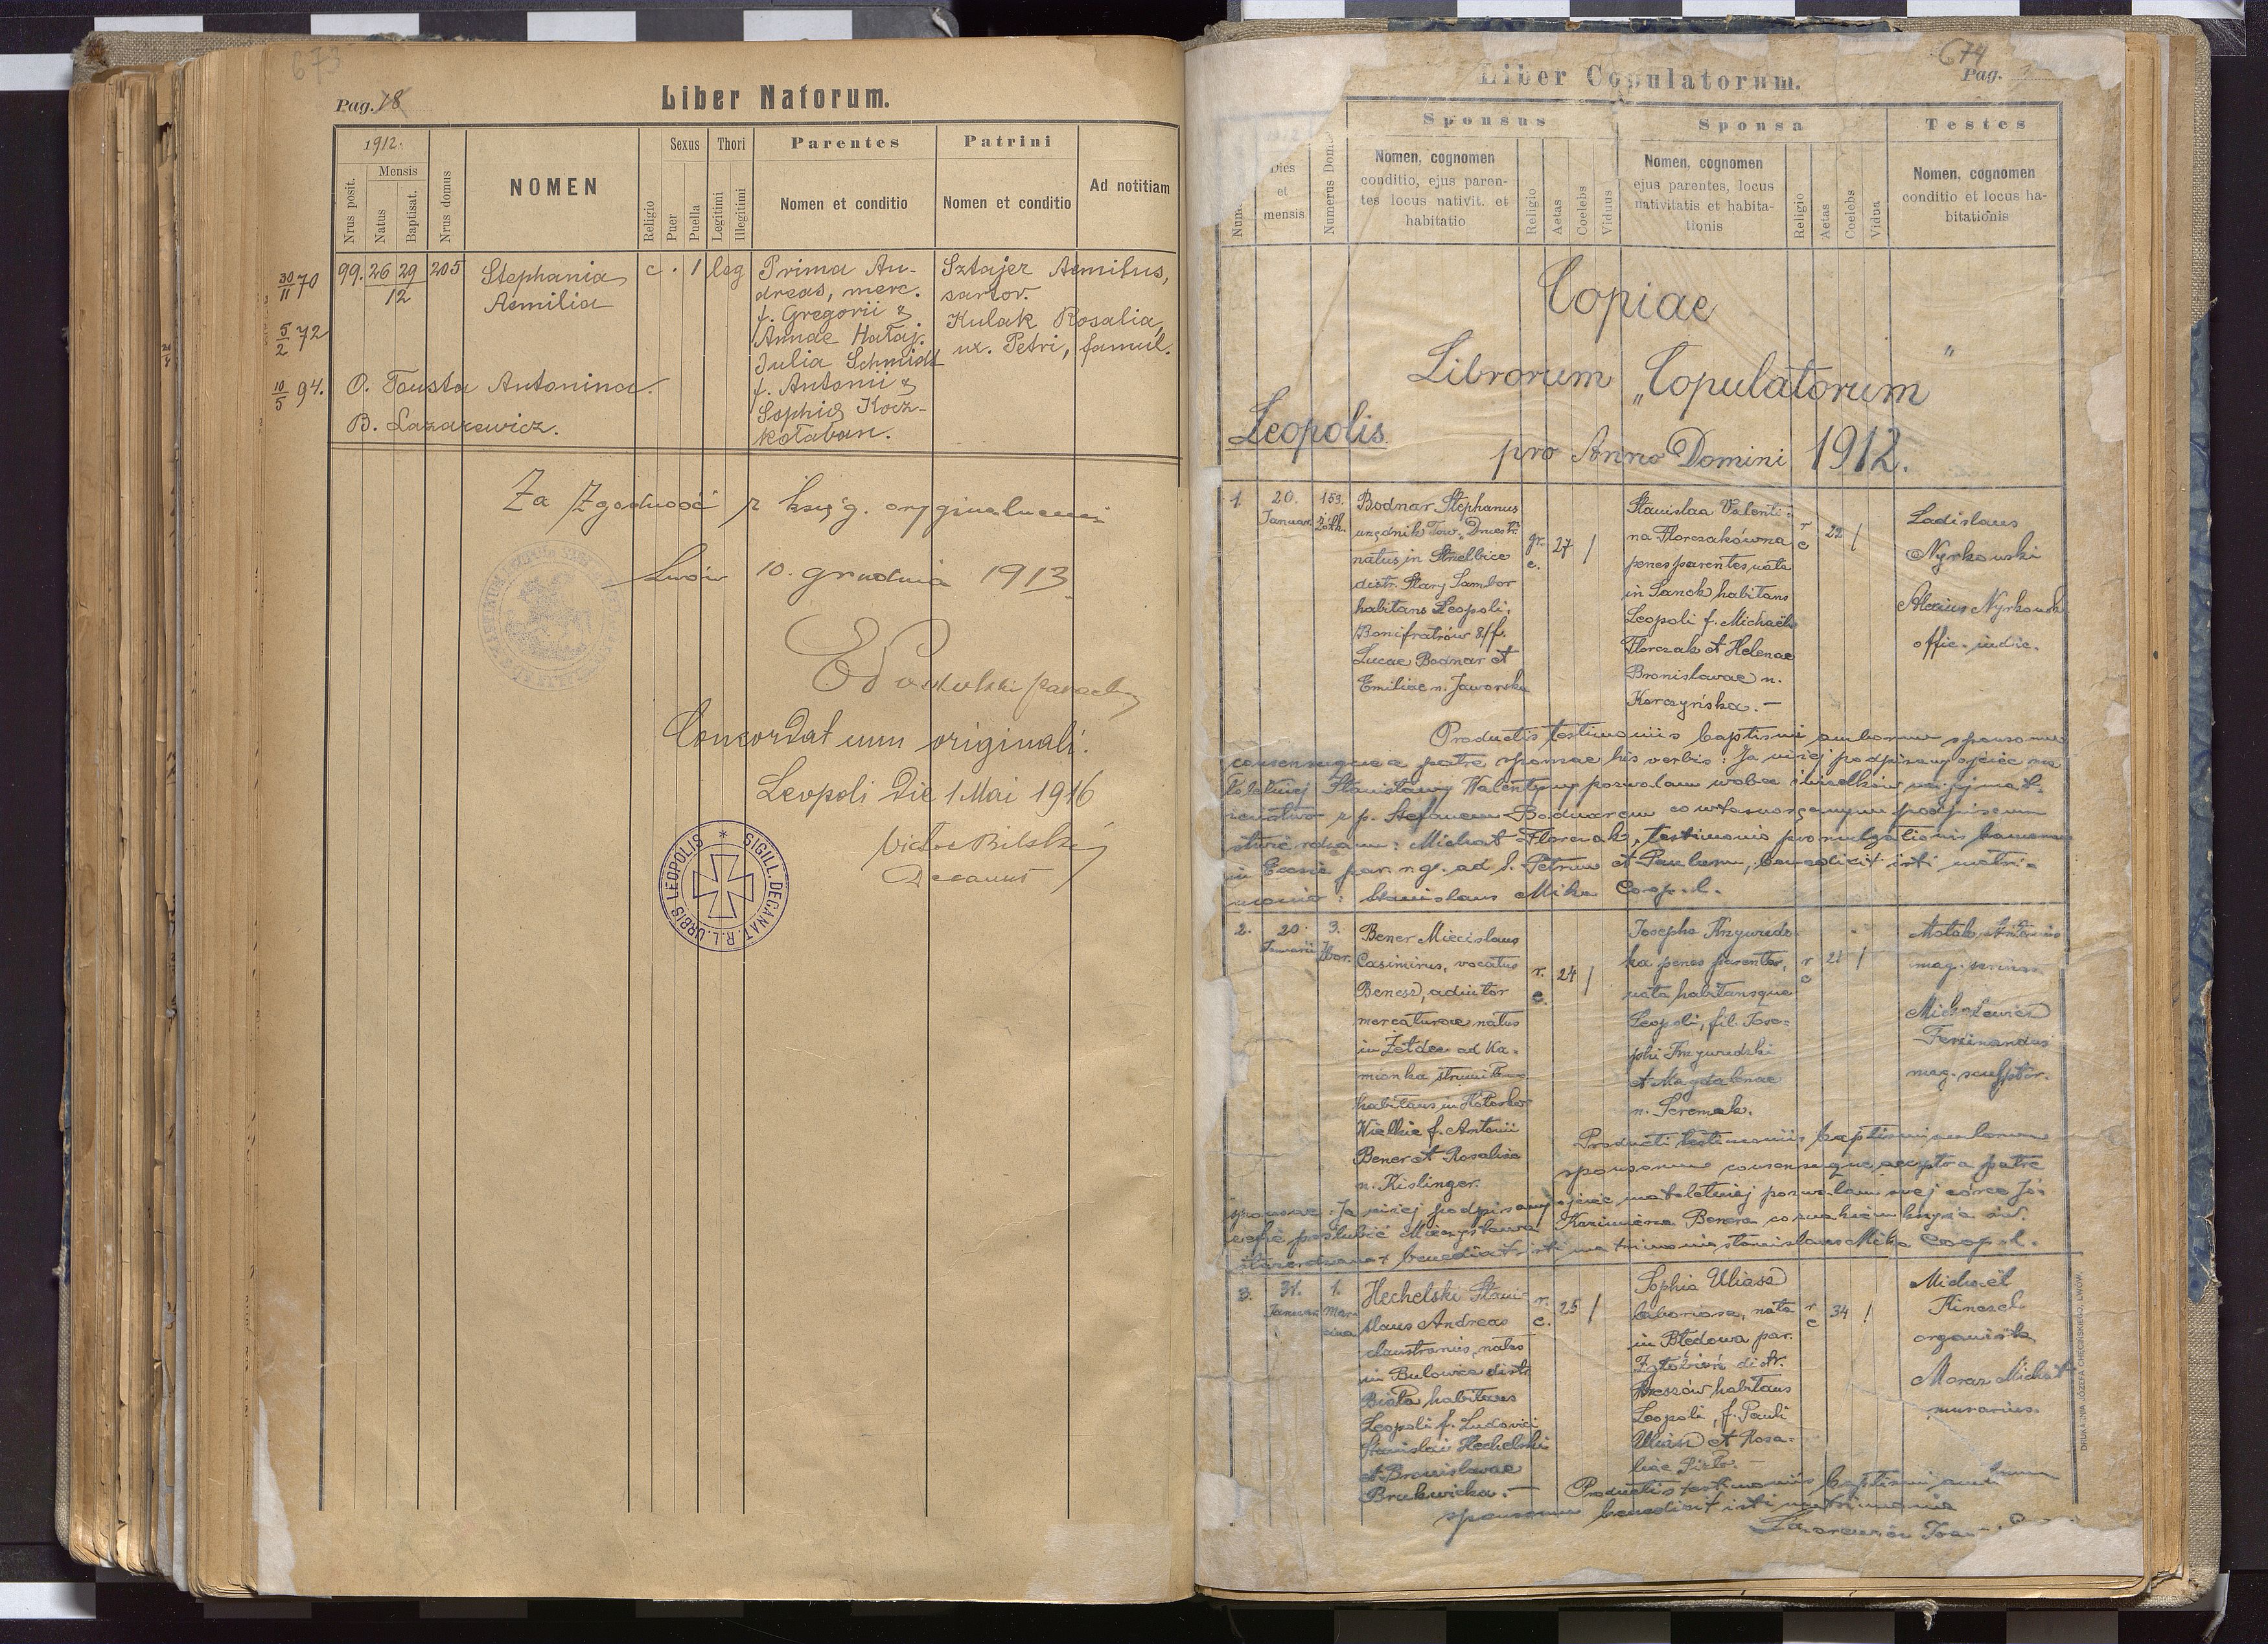 673
Pag. 18
Liber Natorum.
1912.
Nrus posit.
Mensis
Natus
Baptisat.
Nrus domus
NOMEN
Religio
Sexus
Puer
Puella
Thori
Legitimi
Illegitimi
Parentes
Nomen et conditio
Patrini
Nomen et conditio
Ad notitiam
30/11 70
5/2 72
10/5 94.
99. 26 29 205
12
Stephania
Aemilia
c . 1 leg
Prima An-
dreas, merc.
f. Gregorii &
Annae Hataj.
Julia Schmidt
f. Antonii &
Sophiae Kocz-
kołaban.
Sztajer Aemilus,
sartor.
Kulak Rosalia,
ux. Petri, famul.
O. Fausta Antonina.
B. Lazarewicz.
Za zgodność z księg. oryginalnemi
Lwów 10. grudnia 1913
Concordat cum originali.
Leopoli die 1 Mai 1916
Victor Bilski
Decanus
SIGILL. DECANAT. R. L. URBIS LEOPOLIS
674
Liber Copulatorum.
Pag. 3
Dies
et
mensis
Numerus Dom
Sponsus
Nomen, cognomen
conditio, ejus paren-
tes locus nativit. et
habitatio
Religio
Aetas
Coelebs
Viduus
Sponsa
Nomen, cognomen
ejus parentes, locus
nativitatis et habita-
tionis
Religio
Aetas
Coelebs
Vidua
Testes
Nomen, cognomen
conditio et locus ha-
bitationis
Copiae
Librorum „Copulatorum"
Leopolis
pro Anno Domini 1912.
1. 20. 153.
Januar. Żółk.
Bodnar Stephanus
urzędnik Tow. „Dniestr"
natus in Strzelbice
distr. Stary Sambor
habitans Leopoli,
Bonifratrów 8/f.
Lucae Bodnar et
Emiliae n. Jaworska
gr. c. 27 /
Stanislaa Valenti-
na Florczakówna
penes parentes nata
in Sanok habitans
Leopoli f. Michaelis
Florczak et Helenae
Bronislavae n.
Korczyńska.-
r c 22 /
Ladislaus
Nyrkowski
Alexius Nyrkowski
offic. iudic.
Productis testimoniis baptismi amborum sponsorum
consensuque a patre sponsae his verbis: Ja niżej podpisany ojciec ma
łoletniej Stanisławy Walentyny pozwalam wobec świadków na jej mał-
żeństwo z p. Stefanem Bodnarem co własnoręcznym podpisem
stwierdzam: Michał Florczak, testimonio promulgationis bannorum
in Eccsie par. r. g. ad S. Petrum et Paulum, benedixit isti matri-
monio: Stanislaus Mika Coop. l.
2. 20 3.
Januarii Zbor.
Bener Miecislaus
Casimirus, vocatus
Benesz, adiutor
mercaturae natus
in Żełdec ad Ka-
mionka strumił.
habitans in Hołosko
Wielkie f. Antonii
Bener et Rosaliae
n. Kislinger.
r. c. 24 /
nata habitansque
Leopoli, fil. Jose-
phi
et Magdalenae
n. Seremak.
r c 21 /
Matak Antonius
Michalewicz
Ferdinandus
mag. sculptor.
Producti testimoniis baptismi amborum
sponsorum consensuque accepto a patre
sponsae: Ja niżej podpisany ojciec małoletniej pozwalam swej córce Jó-
zefie poślubić Mieczysława Kazimierza Benera co znakiem krzyża św.
stwierdzam + benedixit isti matrimonio Stanislaus Mika Coop. l.
3. 31. 1.
Januar. Mar-
cina
Hechelski Stani-
slaus Andreas
claustrarius, natus
in Bulowice distr.
Biała habitans
Leopoli f. Ludovici
Stanislai Hechelski
et Bronislavae
Brukwicka.-
r. c. 25 /
Sophia Uliasz
laboriosa, nata
in Błędowa par.
distr.
Rzeszów habitans
Leopoli, f. Pauli
Uliasz et Rosa-
liae
r c 34 /
Michaël
organista
Moraz Michał
murarius.
Productis testimoniis baptismi amborum
sponsorum benedixit isti matrimonio
DRUKARNIA JÓZEFA CHĘCIŃSKIEGO, LWÓW.